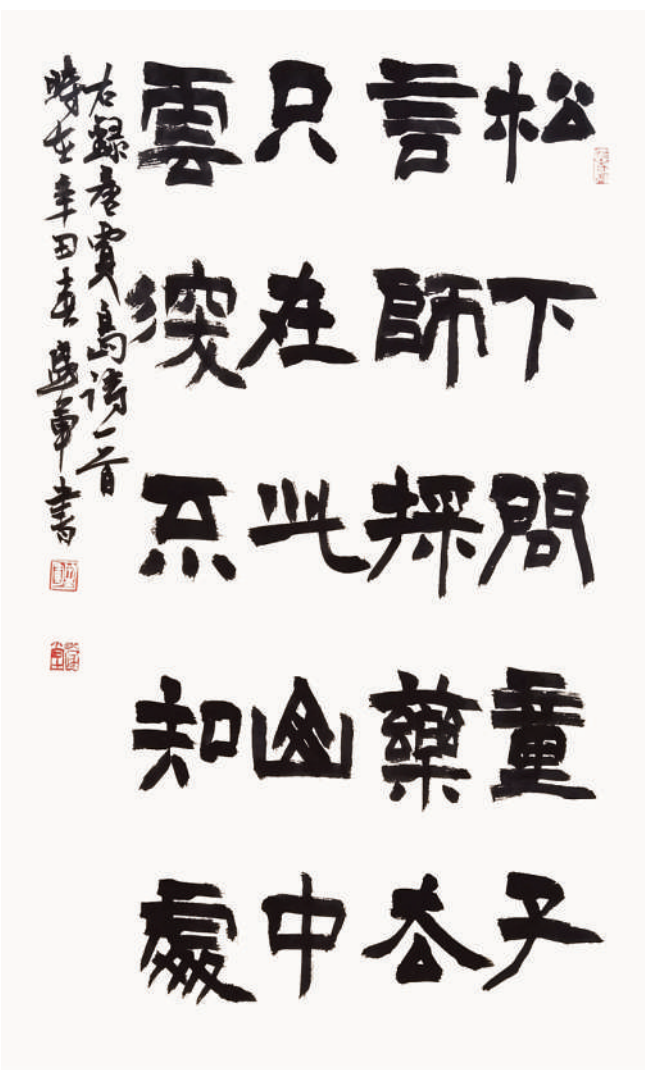 松下問童子
言師採藥去
只在此山中
雲深不知處
右錄唐賈島詩一首
時在辛丑春盛軍書